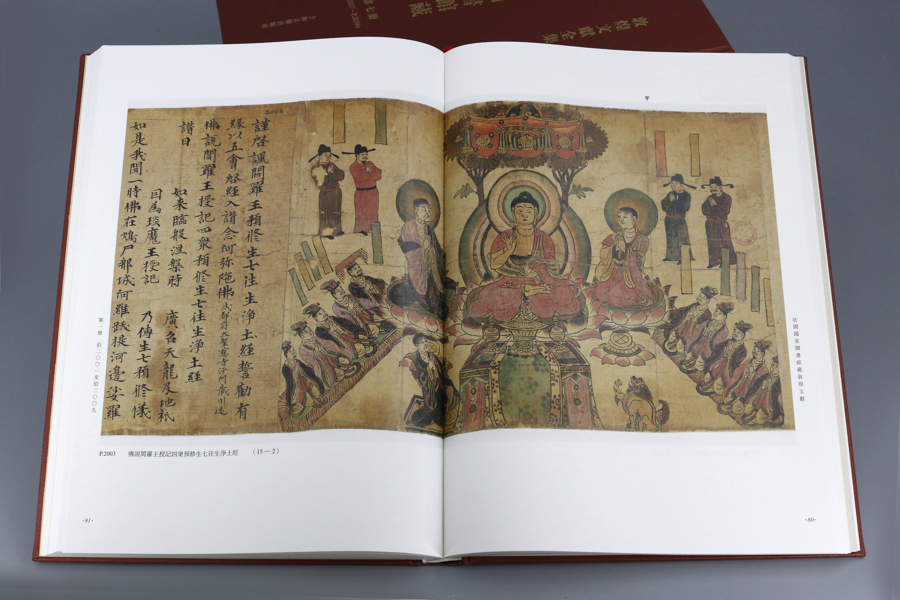 敦煌文獻全集
法國國家圖書館藏敦煌文獻
謹啓諷閻羅王預修生七往生淨土経誓勸有
緣以五會啓経入讃念阿弥陁佛 成都府大聖慈寺沙門藏川述
佛說閻羅王授記四衆預修生七往生淨土経
讃曰
如來臨般涅槃時 廣召天龍及地祇
因為琰魔王授記 乃傳生七預修儀
如是我聞一時佛在鳩尸那城阿維跋提河邊娑羅
第一册 伯二〇〇一至伯二〇〇九
P.2003 佛說閻羅王授記四衆預修生七往生淨土經 (15—2)
·81·
·80·